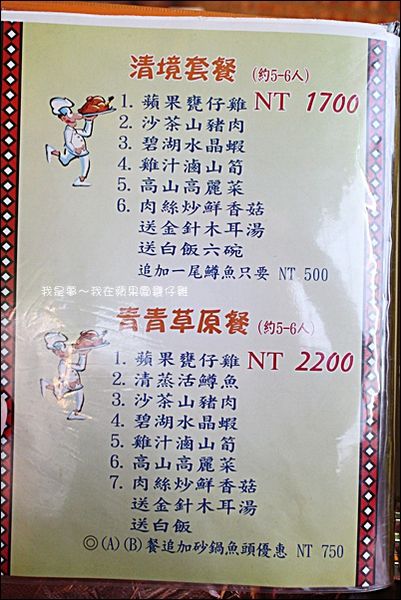 清境套餐 (約5-6人)
1. 蘋果甕仔雞 NT 1700
2. 沙茶山豬肉
3. 碧湖水晶蝦
4. 雞汁滷山筍
5. 高山高麗菜
6. 肉絲炒鮮香菇
送金針木耳湯
送白飯六碗
追加一尾鱒魚只要 NT 500
我是夢～我在蘋果園甕仔雞
青青草原餐 (約5-6人)
1. 蘋果甕仔雞 NT 2200
2. 清蒸活鱒魚
3. 沙茶山豬肉
4. 碧湖水晶蝦
5. 雞汁滷山筍
6. 高山高麗菜
7. 肉絲炒鮮香菇
送金針木耳湯
送白飯
◎(A)(B)餐追加砂鍋魚頭優惠 NT 750